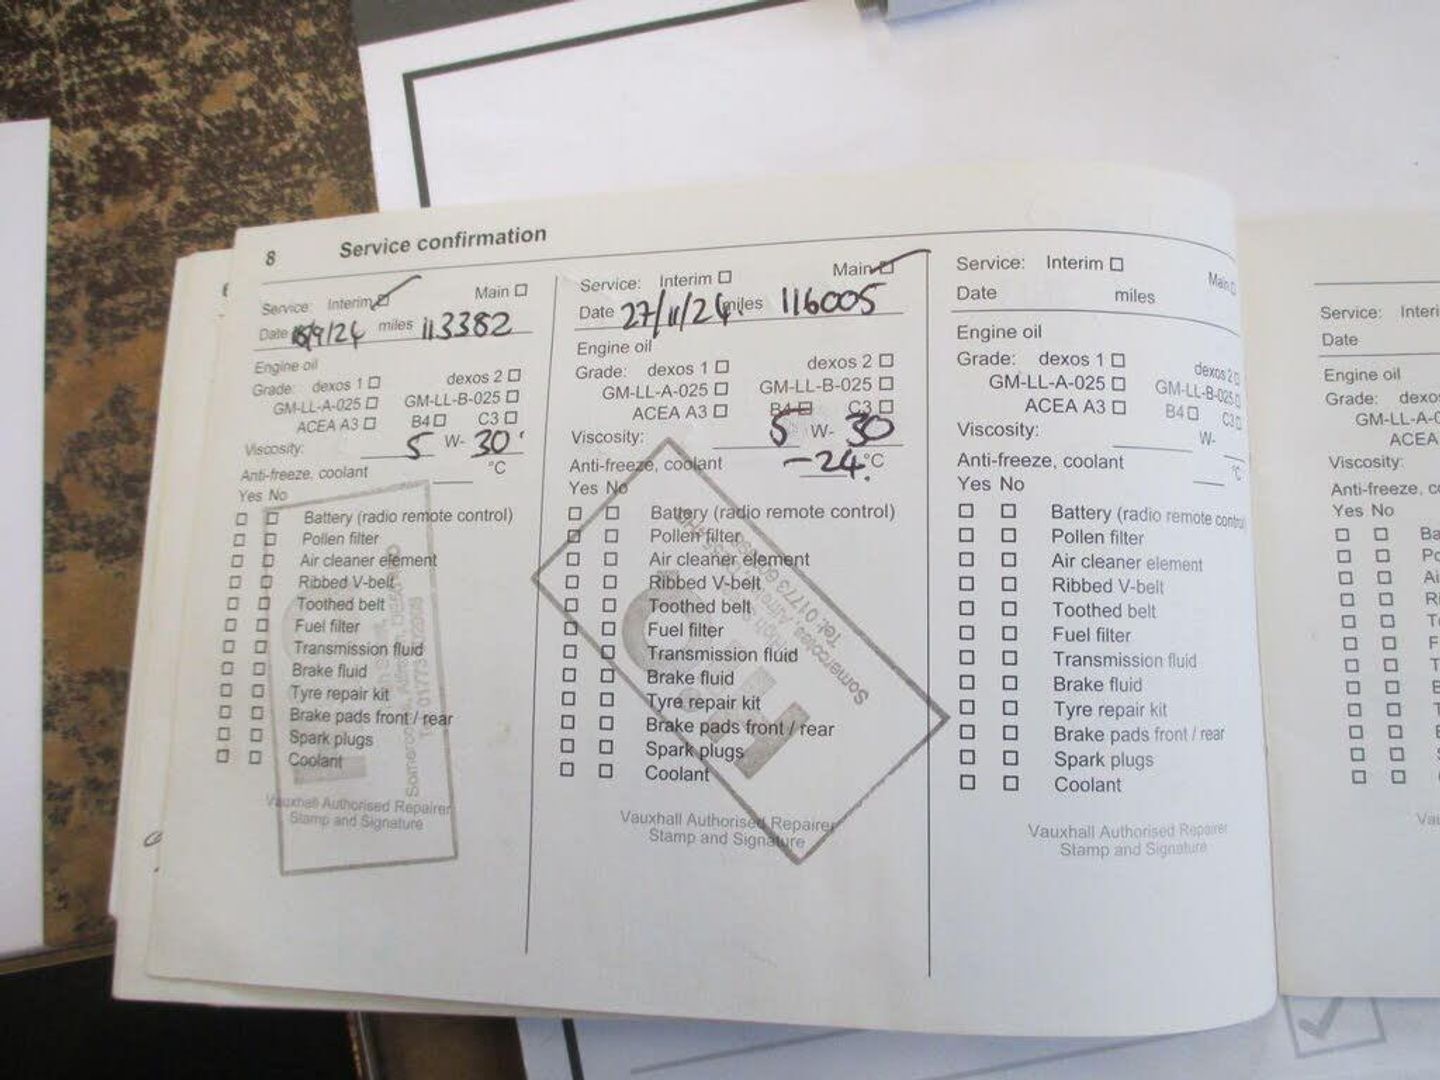 8 Service confirmation
Service: Interim Main
Date 18/9/24 miles 113382
Engine oil
Grade: dexos 1 dexos 2
GM-LL-A-025 GM-LL-B-025
ACEA A3 B4 C3
Viscosity: 5 W- 30
Anti-freeze, coolant °C
Yes No
Battery (radio remote control)
Pollen filter
Air cleaner element
Ribbed V-belt
Toothed belt
Fuel filter
Transmission fluid
Brake fluid
Tyre repair kit
Brake pads front / rear
Spark plugs
Coolant
Vauxhall Authorised Repairer
Stamp and Signature
Service: Interim Main
Date 27/11/24 miles 116005
Engine oil
Grade: dexos 1 dexos 2
GM-LL-A-025 GM-LL-B-025
ACEA A3 B4 C3
Viscosity: 5 W- 30
Anti-freeze, coolant -24 °C
Yes No
Battery (radio remote control)
Pollen filter
Air cleaner element
Ribbed V-belt
Toothed belt
Fuel filter
Transmission fluid
Brake fluid
Tyre repair kit
Brake pads front / rear
Spark plugs
Coolant
Somercotes
Tel: 01773
Vauxhall Authorised Repairer
Stamp and Signature
Service: Interim Main
Date miles
Engine oil
Grade: dexos 1 dexos 2
GM-LL-A-025 GM-LL-B-025
ACEA A3 B4 C3
Viscosity: W-
Anti-freeze, coolant °C
Yes No
Battery (radio remote control)
Pollen filter
Air cleaner element
Ribbed V-belt
Toothed belt
Fuel filter
Transmission fluid
Brake fluid
Tyre repair kit
Brake pads front / rear
Spark plugs
Coolant
Vauxhall Authorised Repairer
Stamp and Signature
Service: Interi
Date
Engine oil
Grade: dexos
GM-LL-A-0
ACEA
Viscosity:
Anti-freeze, c
Yes No